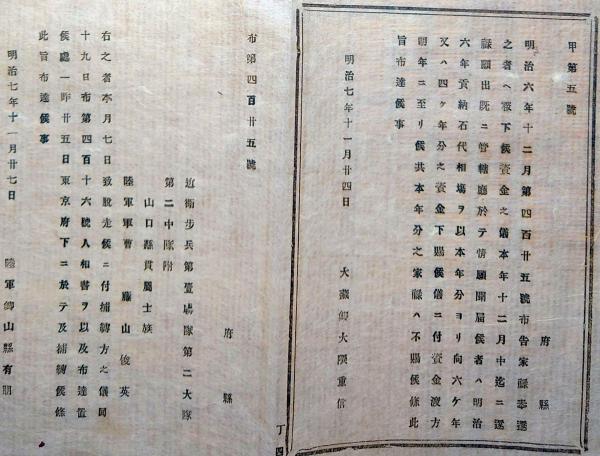 甲第五號
府縣
明治六年十二月第四百廿五號布告家祿奉還
之者ヘ被下候資金之儀本年十二月中迄ニ還
祿願出既ニ管轄廳於テ情願聞屆候者ハ明治
六年貢納石代相場ヲ以本年分ヨリ向六ケ年
又ハ四ケ年分之資金下賜候儀ニ付資金渡方
明年ニ至リ候共本年分之家祿ハ不賜候條此
旨布達候事
明治七年十一月廿四日
大藏卿大隈重信
丁四
布第四百廿五號
府縣
近衞步兵第壹聯隊第二大隊
第二中隊附
山口縣貫屬士族
陸軍軍曹 藤山俊英
右之者本月七日致脫走候ニ付捕縛方之儀同
十九日布第四百十六號人相書ヲ以及布達置
候處一昨廿五日東京府下ニ於テ及捕縛候條
此旨布達候事
明治七年十一月廿七日
陸軍卿山縣有朋